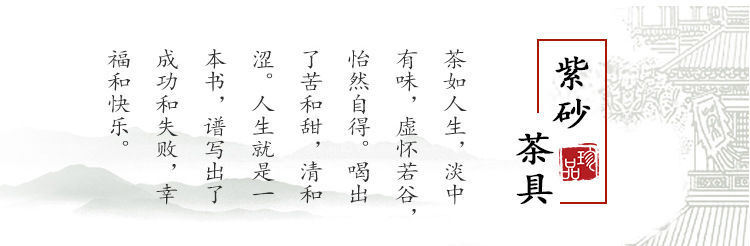 紫砂
茶具
珍品
茶如人生，淡中
有味，虚怀若谷，
怡然自得。喝出
了苦和甜，清和
涩。人生就是一
本书，谱写出了
成功和失败，幸
福和快乐。